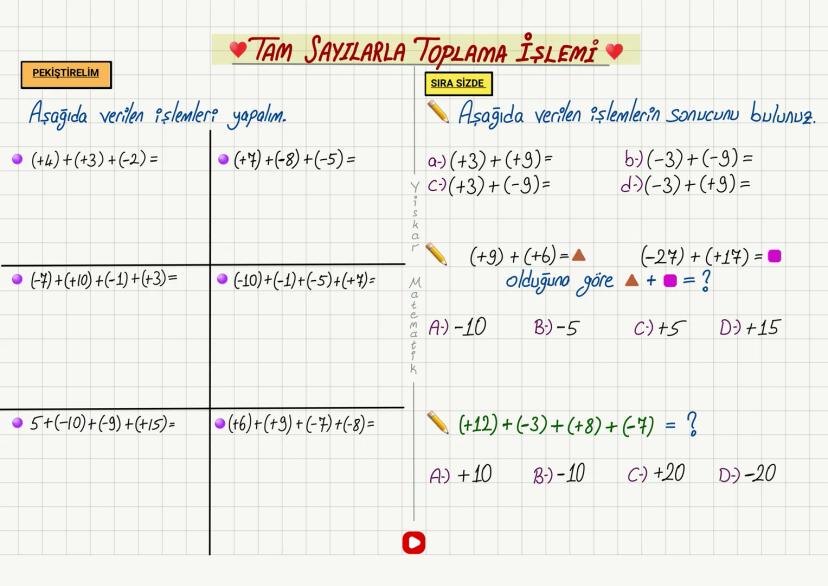 TAM SAYILARLA TOPLAMA İŞLEMİ
PEKİŞTİRELİM
Aşağıda verilen işlemleri yapalım.
(+4)+(+3)+(-2)=
(+7)+(-8)+(-5)=
(-7)+(+10)+(-1)+(+3)=
(-10)+(-1)+(-5)+(+7)=
5+(-10)+(-9)+(+15)=
(+6)+(+9)+(-7)+(-8)=
Yiskar Matematik
SIRA SİZDE
Aşağıda verilen işlemlerin sonucunu bulunuz.
a-)(+3)+(+9)= b-)(-3)+(-9)=
c-)(+3)+(-9)= d-)(-3)+(+9)=
(+9)+(+6)=▲ (-27)+(+17)=■
olduğuna göre ▲+■=?
A-) -10 B-) -5 C-) +5 D-) +15
(+12)+(-3)+(+8)+(-7) = ?
A-) +10 B-) -10 C-) +20 D-) -20